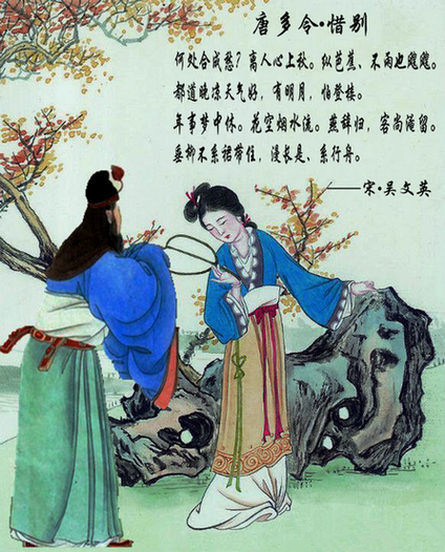 唐多令·惜别
何处合成愁？离人心上秋。纵芭蕉、不雨也飕飕。
都道晚凉天气好，有明月，怕登楼。
年事梦中休。花空烟水流。燕辞归，客尚淹留。
垂柳不系裙带住，漫长是、系行舟。
——宋·吴文英